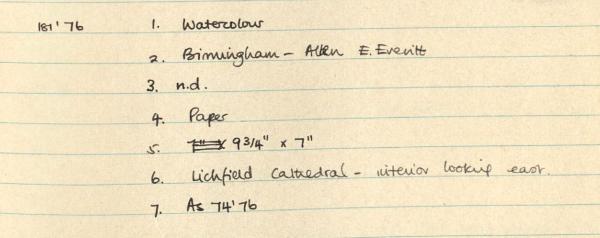 181'76 1. Watercolour
2. Birmingham - Allen E. Everitt
3. n.d.
4. Paper
5. 9 3/4" x 7"
6. Lichfield Cathedral - interior looking east.
7. As 74'76